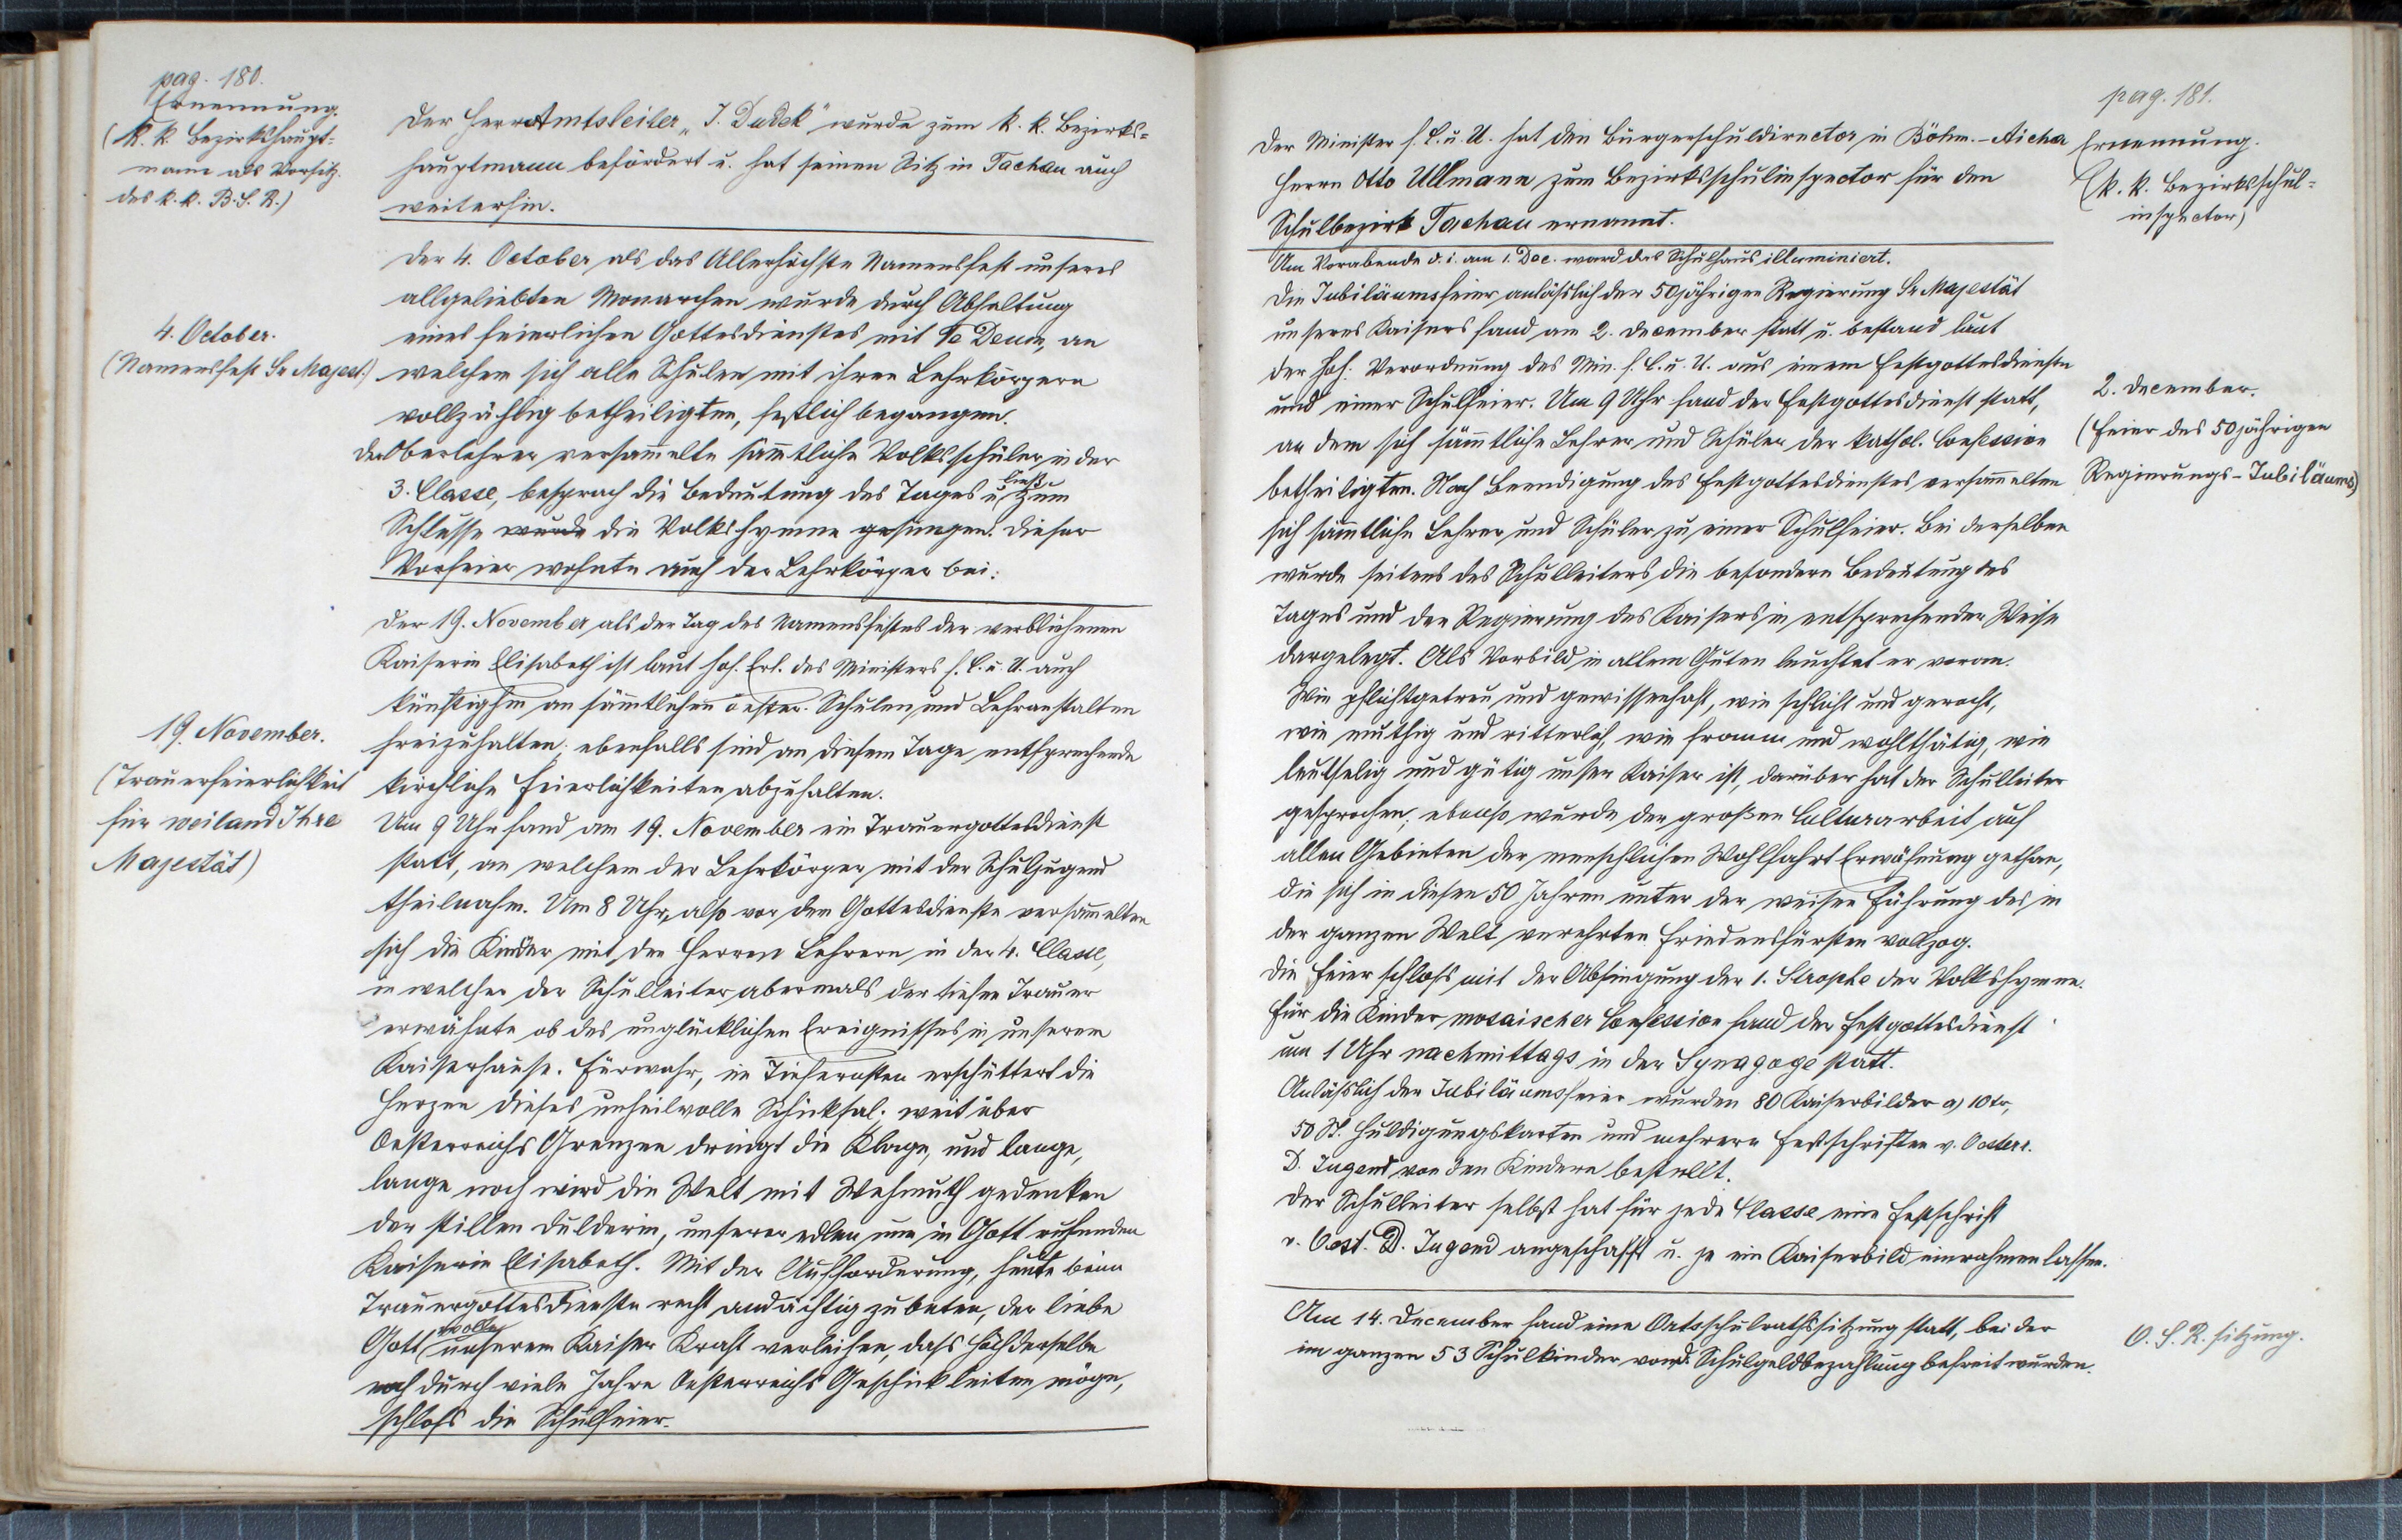 pag. 180.
Ernennung.
(k. k. Bezirkshaupt-
mann als Vorsitz.
des k. k. B. S. R.)
Der Herr Amtsleiter „J. Dudek" wurde zum k. k. Bezirks-
hauptmann befördert u. hat seinen Sitz in Tachau auch
weiterhin.
4. October.
(Namensfest Sr Majest.)
Der 4. October als das Allerhöchste Namensfest unseres
allgeliebten Monarchen wurde durch Abhaltung
eines feierlichen Gottesdienstes mit Te Deum, an
welchem sich alle Schulen mit ihren Lehrkörpern
vollzählig betheiligten, festlich begangen.
Der Oberlehrer versam̄elte säm̄tliche Volksschüler in der
3. Classe, besprach die Bedeutung des Tages u. ließ zum
Schlusse wurde die Volkshymne gesungen. Dieser
Vorfeier wohnte auch der Lehrkörper bei.
19. November.
(Trauerfeierlichkeit
für weiland Ihre
Majestät)
Der 19. November als der Tag des Namensfestes der verblichenen
Kaiserin Elisabeth ist laut hoh. Erl. des Ministers f. C. u. U. auch
künftighin an säm̄tlichen österr. Schulen und Lehranstalten
freizuhalten; ebenfalls sind an diesem Tage entsprechende
kirchliche Feierlichkeiten abzuhalten.
Um 9 Uhr fand am 19. November ein Trauergottesdienst
statt, an welchem der Lehrkörper mit der Schuljugend
theilnahm. Um 8 Uhr, also vor dem Gottesdienste versam̄elten
sich die Kinder mit den Herren Lehrern in der 4. Classe,
in welcher der Schulleiter abermals der tiefen Trauer
erwähnte ob des unglücklichen Ereignisses in unserem
Kaiserhause. Fürwahr, im Tiefernsten erschüttert die
Herzen dieses unheilvolle Schicksal. Weit über
Oesterreichs Grenzen dringt die Klage, und lange,
lange noch wird die Welt mit Wehmuth gedenken
der stillen Dulderin, unserer edlen nun in Gott ruhenden
Kaiserin Elisabeth. Mit der Aufforderung, heute beim
Trauergottesdienste recht andächtig zu beten, der liebe
Gott wolle unserem Kaiser Kraft verleihen, dass Höchderselbe
noch durch viele Jahre Oesterreichs Geschick leiten möge,
schloss die Schulfeier.
pag. 181.
Der Minister f. C. u. U. hat den Bürgerschuldirector in Böhm.-Aicha
Herrn Otto Ullmann zum Bezirksschulinspector für den
Schulbezirk Tachau ernannt.
Ernennung.
(k. k. Bezirksschul-
inspector)
Am Vorabende d. i. am 1. Dec. ward das Schulhaus illuminiert.
Die Jubiläumsfeier anlässlich der 50jährigen Regierung Sr Majestät
unseres Kaisers fand am 2. December statt u. bestand laut
der hoh. Verordnung des Min. f. C. u. U. aus einem Festgottesdienste
und einer Schulfeier. Um 9 Uhr fand der Festgottesdienst statt,
an dem sich säm̄tliche Lehrer und Schüler der kathol. Confession
betheiligten. Nach Beendigung des Festgottesdienstes versam̄elten
sich säm̄tliche Lehrer und Schüler zu einer Schulfeier. Bei derselben
wurde seitens des Schulleiters die besondere Bedeutung des
Tages und der Regierung des Kaisers in entsprechender Weise
dargelegt. Als Vorbild in allem Guten leuchtet er voran.
Wie pflichtgetreu und gewissenhaft, wie schlicht und gerecht,
wie muthig und ritterlich, wie fromm und wohlthätig, wie
leutselig und gütig unser Kaiser ist, darüber hat der Schulleiter
gesprochen; ebenso wurde der großen Culturarbeit auf
allen Gebieten der menschlichen Wohlfahrt Erwähnung gethan,
die sich in diesen 50 Jahren unter der weisen Führung des in
der ganzen Welt verehrten Friedensfürsten vollzog.
Die Feier schloss mit der Absingung der 1. Strophe der Volkshymne.
Für die Kinder mosaischer Confession fand der Festgottesdienst
um 1 Uhr nachmittags in der Synagoge statt.
Anlässlich der Jubiläumsfeier wurden 80 Kaiserbilder a) 10 kr,
50 St. Huldigungskarten und mehrere Festschriften v. Oesterr.
D. Jugend von den Kindern bestellt.
Der Schulleiter selbst hat für jede Classe eine Festschrift
v. Oest. D. Jugend angeschafft u. je ein Kaiserbild einrahmen lassen.
2. December.
(Feier des 50jährigen
Regierungs-Jubiläums)
Am 14. December fand eine Ortsschulrathssitzung statt, bei der
im ganzen 53 Schulkinder von d. Schulgeldbezahlung befreit wurden.
O. S. R. sitzung.